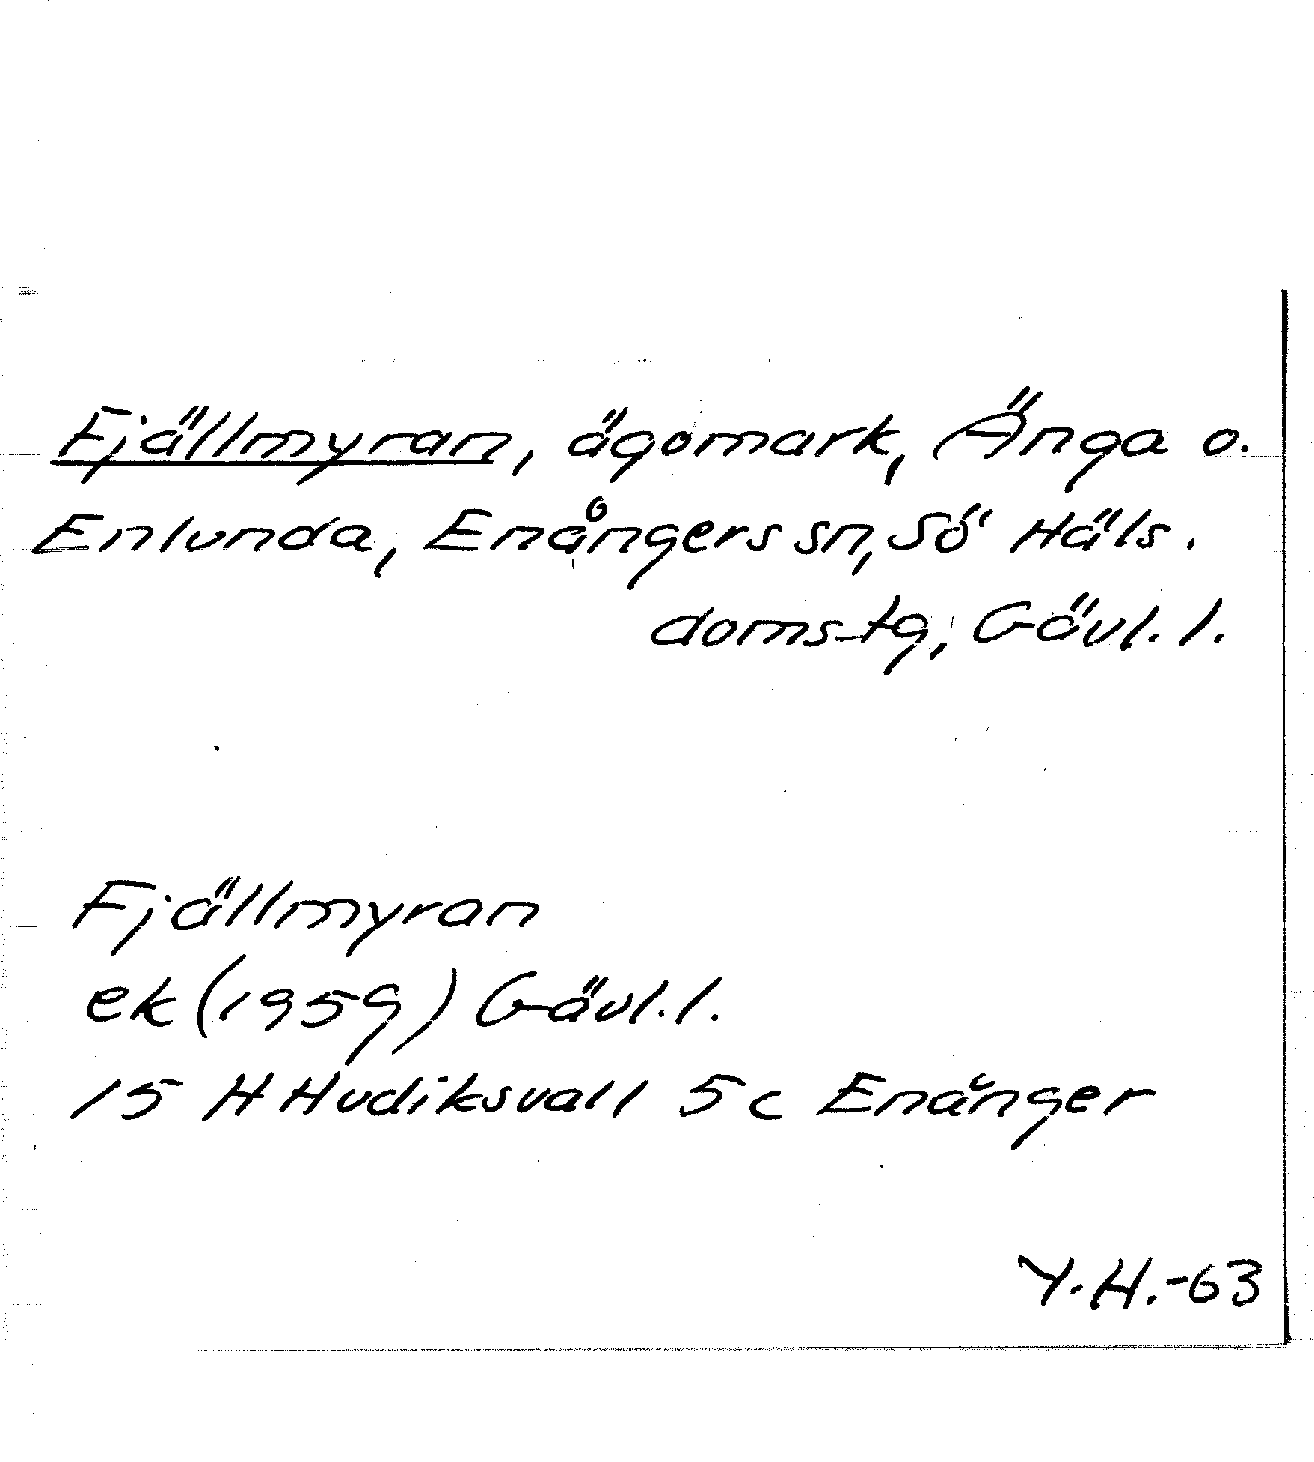 Fjällmyran, ägomark, Änga o.
Enlunda, Enångers sn, Sö Häls.
doms-tg, Gävl. l.
Fjällmyran
ek (1959) Gävl. l.
15 H Hudiksvall 5c Enånger
Y.H.-63